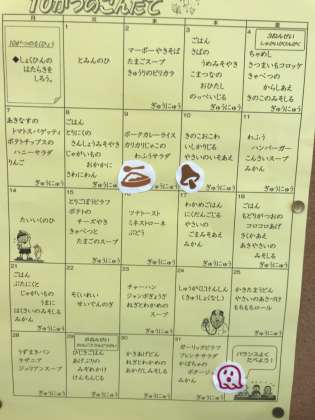 10がつのこんだて
10がつのもくひょう
◆しょくひんの
はたらきを
しろう。
1
とみんのひ
2
マーボーやきそば
たまごスープ
きゅうりのピリカラ
ぎゅうにゅう
3
ごはん
さばの
うめみそやき
こまつなの
おひたし
のっぺいじる
ぎゅうにゅう
4
ちゃめし
さつまいもコロッケ
きゃべつの
からしあえ
きのこのみそしる
ぎゅうにゅう
7
あきなすの
トマトスパゲッティ
ポテトチップスの
ハニーサラダ
りんご
ぎゅうにゅう
8
ごはん
とりにくの
さんしょうみそやき
じゃがいもの
おかかに
さわにわん
ぎゅうにゅう
9
ポークカレーライス
カリカリじゃこの
わふうサラダ
ぎゅうにゅう
10
きのこおこわ
いしかりじる
やさいのいそあえ
ぎゅうにゅう
11
わふう
ハンバーガー
こんさいスープ
みかん
ぎゅうにゅう
14
たいいくのひ
15
とりごぼうピラフ
ポテトの
チーズやき
きゃべつと
たまごのスープ
ぎゅうにゅう
16
ツナトースト
ミネストローネ
ぶどう
ぎゅうにゅう
17
わかめごはん
にくだんごじる
やさいの
ごまみそあえ
みかん
ぎゅうにゅう
18
ごはん
もどりがつおの
コロコロあげ
さくかあえ
あきやさいの
みそしる
ぎゅうにゅう
21
ごはん
ぶたにくと
じゃがいもの
うまに
はくさいのみそしる
みかん
ぎゅうにゅう
22
そくいれい
せいでんのぎ
23
チャーハン
ジャンボぎょうざ
ねぎとわかめの
スープ
ぎゅうにゅう
24
しょうが
ぎゅうにゅう
25
かきたまうどん
やさいのあさづけ
もちもちロール
ぎゅうにゅう
28
うずまきパン
ラザニア
ジュリアンスープ
ぎゅうにゅう
29
ひじきごはん
あげぶりの
みぞれかけ
けんちんじる
ぎゅうにゅう
30
かきあげどん
ねぎとわかめの
あかだしみそしる
ぎゅうにゅう
31
ガーリックピラフ
フレンチサラダ
かぼちゃの
ポタージュ
みかん
バランスよく
たべよう！